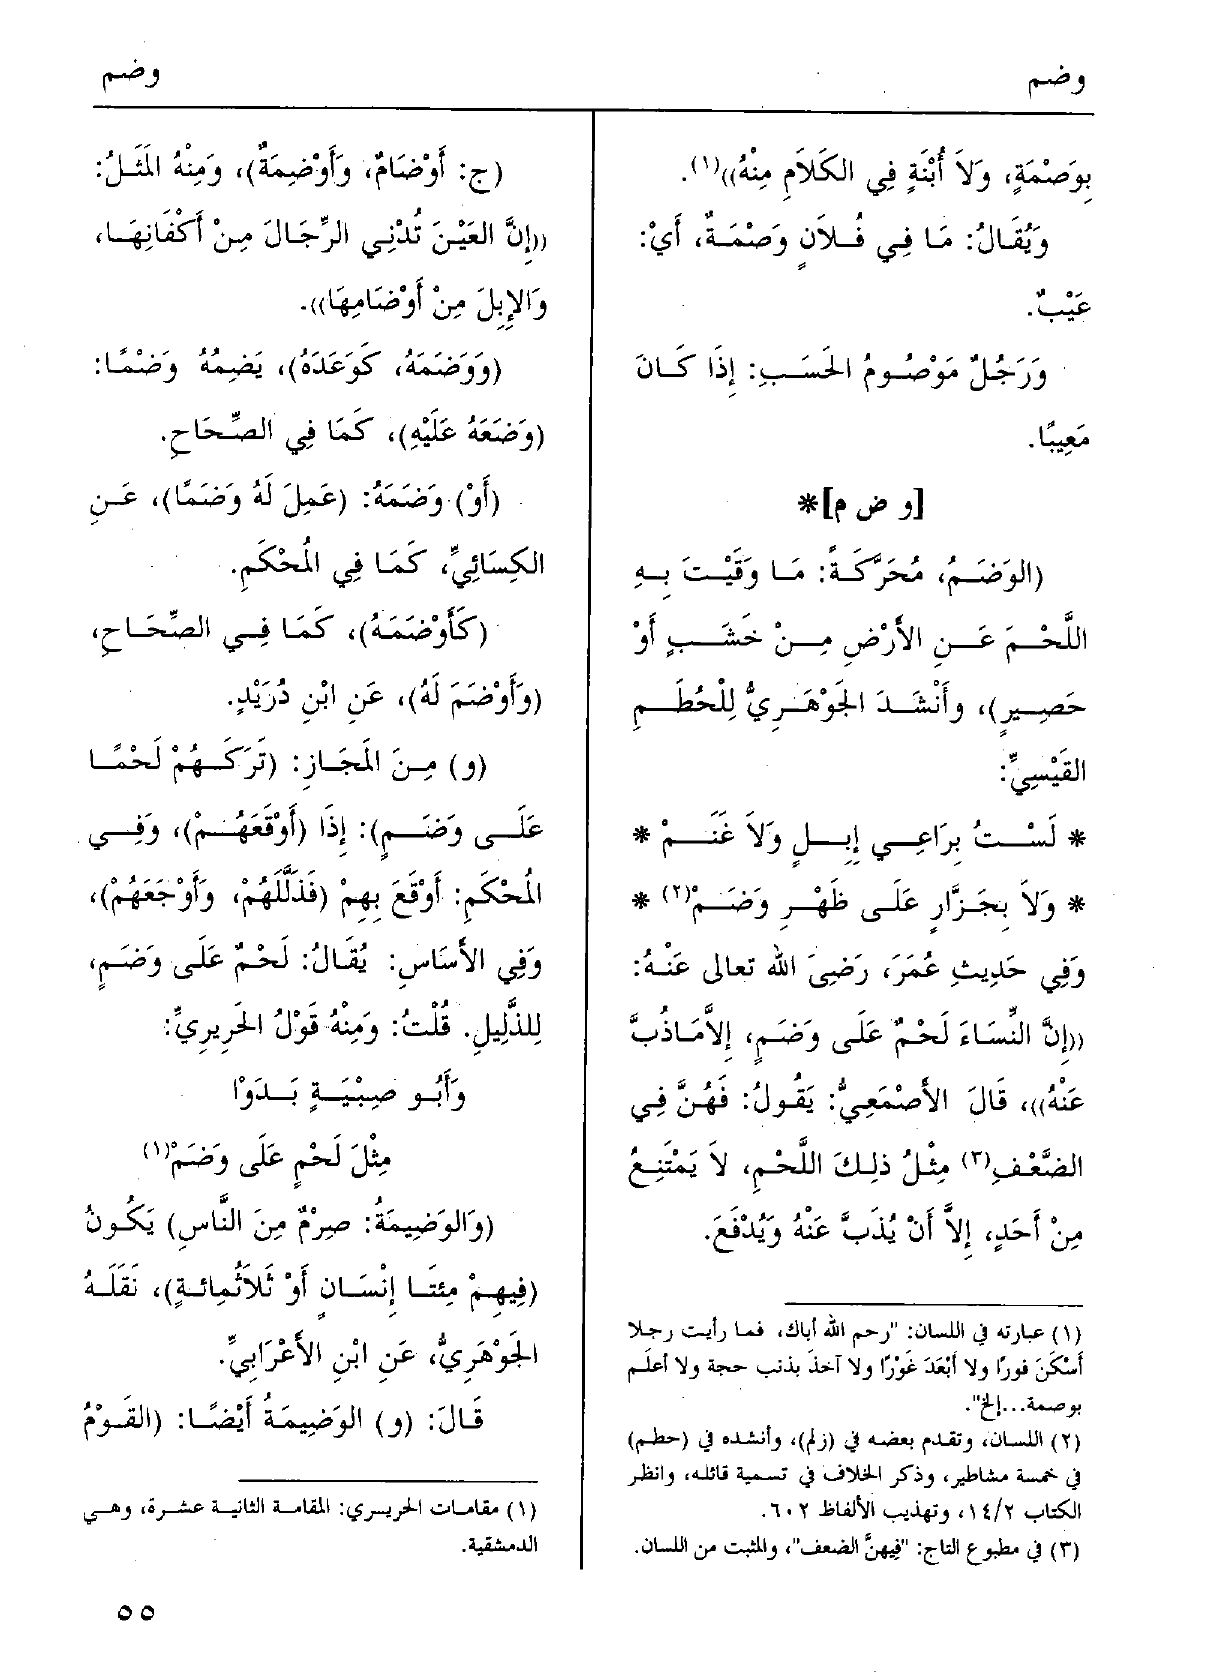 وضم
وضم
بِوَصْمَةٍ، وَلاَ أُبْنَةٍ فِي الكَلاَمِ مِنْهُ))(١).
وَيُقَالُ: مَا فِي فُلاَنٍ وَصْمَةٌ، أَيْ:
عَيْبٌ.
وَرَجُلٌ مَوْصُومُ الحَسَبِ: إِذَا كَانَ
مَعِيبًا.
[و ض م]*
(الوَضَمُ، مُحَرَّكَةً: مَا وَقَيْتَ بِهِ
اللَّحْمَ عَنِ الأَرْضِ مِنْ خَشَبٍ أَوْ
حَصِيرٍ)، وأَنْشَدَ الجَوْهَرِيُّ لِلْحُطَمِ
القَيْسِيِّ:
* لَسْتُ بِرَاعِي إِبِلٍ وَلاَ غَنَمْ *
* وَلاَ بِجَزَّارٍ عَلَى ظَهْرِ وَضَمْ(٢) *
وَفِي حَدِيثِ عُمَرَ، رَضِيَ الله تعالى عَنْهُ:
((إِنَّ النِّسَاءَ لَحْمٌ عَلَى وَضَمٍ، إِلاَّ مَاذُبَّ
عَنْهُ))، قَالَ الأَصْمَعِيُّ: يَقُولُ: فَهُنَّ فِي
الضَّعْفِ(٣) مِثْلُ ذلِكَ اللَّحْمِ، لاَ يَمْتَنِعُ
مِنْ أَحَدٍ، إِلاَّ أَنْ يُذَبَّ عَنْهُ وَيُدْفَعَ.
(١) عبارته في اللسان: "رحم الله أباك، فما رأيت رجلا
أَسْكَنَ فورًا ولا أَبْعَدَ غَوْرًا ولا آخذَ بذنب حجة ولا أعلَم
بوصمة...إلخ".
(٢) اللسان، وتقدم بعضه في (زلم)، وأنشده في (حطم)
في خمسة مشاطير، وذكر الخلاف في تسمية قائله، وانظر
الكتاب ١٤/٢، وتهذيب الألفاظ ٦٠٢.
(٣) في مطبوع التاج: "فِيهِنَّ الضعف"، والمثبت من اللسان.
(ج: أَوْضَامٌ، وَأَوْضِمَةٌ)، وَمِنْهُ المَثَلُ:
((إِنَّ العَيْنَ تُدْنِي الرِّجَالَ مِنْ أَكْفَانِهَا،
وَالإِبِلَ مِنْ أَوْضَامِهَا)).
(وَوَضَمَهُ، كَوَعَدَهُ)، يَضِمُهُ وَضْمًا:
(وَضَعَهُ عَلَيْهِ)، كَمَا فِي الصِّحَاحِ.
(أَوْ) وَضَمَهُ: (عَمِلَ لَهُ وَضَمًا)، عَنِ
الكِسَائِيِّ، كَمَا فِي المُحْكَمِ.
(كَأَوْضَمَهُ)، كَمَا فِي الصِّحَاحِ،
(وَأَوْضَمَ لَهُ)، عَنِ ابْنِ دُرَيْدٍ.
(و) مِنَ المَجَازِ: (تَرَكَهُمْ لَحْمًا
عَلَى وَضَمٍ): إِذَا (أَوْقَعَهُمْ)، وَفِي
المُحْكَمِ: أَوْقَعَ بِهِمْ (فَذَلَّلَهُمْ، وَأَوْجَعَهُمْ)،
وَفِي الأَسَاسِ: يُقَالُ: لَحْمٌ عَلَى وَضَمٍ،
لِلذَّلِيلِ. قُلْتُ: وَمِنْهُ قَوْلُ الحَرِيرِيِّ:
وَأَبُو صِبْيَةٍ بَدَوْا
مِثْلَ لَحْمٍ عَلَى وَضَمْ(١)
(وَالوَضِيمَةُ: صِرْمٌ مِنَ النَّاسِ) يَكُونُ
(فِيهِمْ مِئَتَا إِنْسَانٍ أَوْ ثَلاَثُمِائَةٍ)، نَقَلَهُ
الجَوْهَرِيُّ، عَنِ ابْنِ الأَعْرَابِيِّ.
قَالَ: (و) الوَضِيمَةُ أَيْضًا: (القَوْمُ
(١) مقامات الحريري: المقامة الثانية عشرة، وهي
الدمشقية.
٥٥